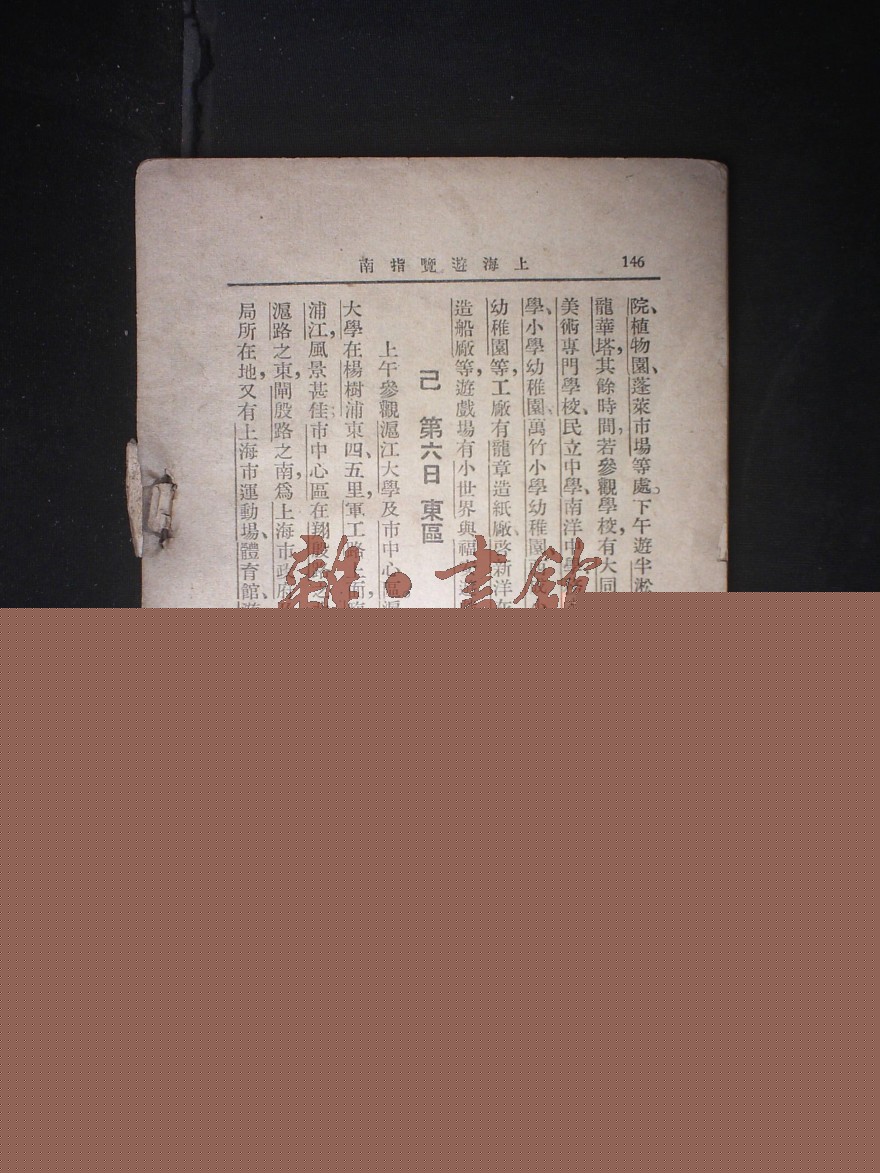 146
上海遊覽指南
院、植物園、蓬萊市場等處。下午遊半淞
龍華塔，其餘時間，若參觀學校，有大同
美術專門學校、民立中學、南洋中學
學、小學幼稚園、萬竹小學幼稚園、
幼稚園等，工廠有龍章造紙廠、啓新洋灰
造船廠等，遊戲場有小世界與福
己 第六日 東區
上午參觀滬江大學及市中心區。滬
大學在楊樹浦東四、五里，軍工路
浦江，風景甚佳；市中心區在翔殷路之
滬路之東，閘殷路之南，爲上海市政府
局所在地，又有上海市運動場、體育館、游
雜·書館